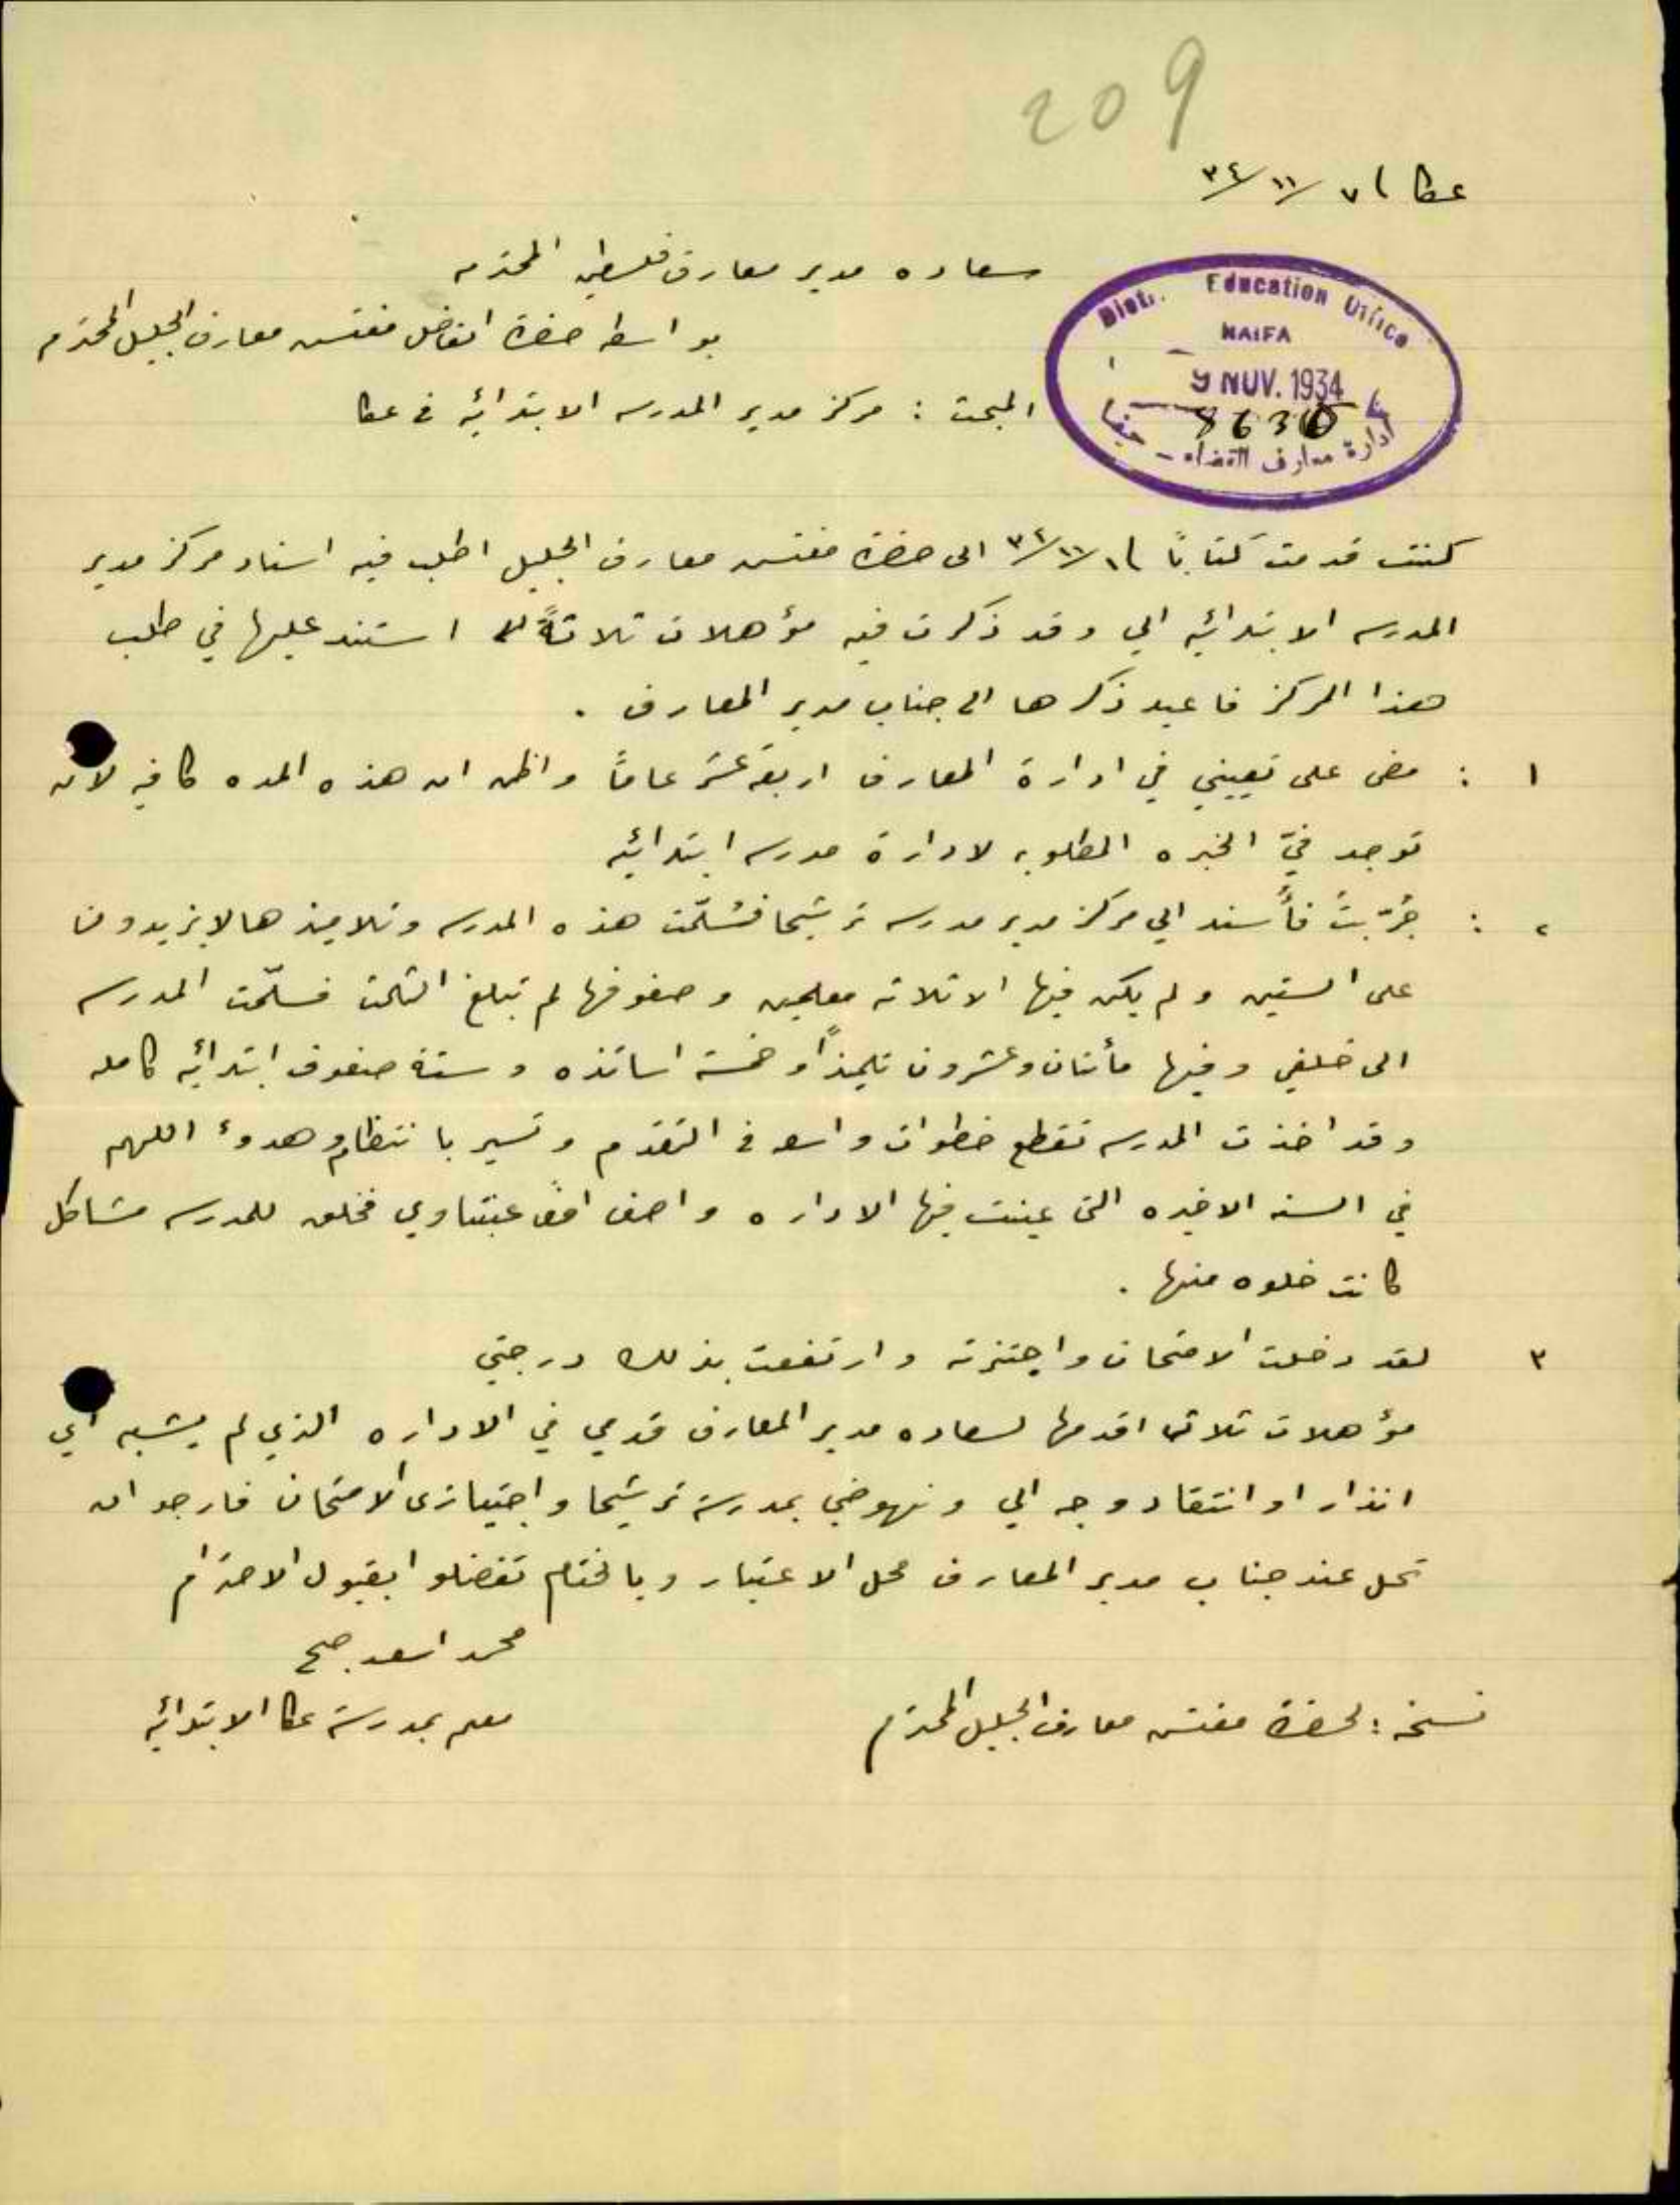 209
عكا ٧/١١/٣٤
سعاده مدير معارف فلسطين المحترم
بواسطه حضرة الفاضل مفتش معارف الجليل المحترم
Distr. Education Office
HAIFA
9 NOV. 1934
ادارة معارف القضاء - حيفا
المبحث : مركز مدير المدرسه الابتدائيه في عكا
كنت قدمت كتابًا ١/١١/٣٤ الى حضرة مفتش معارف الجليل اطلب فيه اسناد مركز مدير
المدرسه الابتدائيه الي وقد ذكرت فيه مؤهلات ثلاثةً استند عليها في طلب
هذا المركز فاعيد ذكرها الى جناب مدير المعارف .
١ : مضى على تعييني في ادارة المعارف اربعة عشر عامًا واظن ان هذه المده كافيه لان
توجد فيّ الخبره المطلوبه لادارة مدرسه ابتدائيه
٢ : جُرّبتُ فأُسند الي مركز مدير مدرسه ترشيحا فتسلّمت هذه المدرسه وتلاميذها لا يزيدون
على الستين ولم يكن فيها الا ثلاثه معلمين وصفوفها لم تبلغ الثالث فسلّمت المدرسه
الى خلفي وفيها مأتان وعشرون تلميذاً وخمسة اساتذه وستة صفوف ابتدائيه كامله
وقد اخذت المدرسه تقطع خطوات واسعه في التقدم وتسير بانتظام وهدوء اللهم
في السنه الاخيره التي عينت فيها الاداره واصف افندي عبتاوي فخلق للمدرسه مشاكل
كانت خلوه منها .
٣ لقد دخلت الامتحان واجتزته وارتفعت بذلك درجتي
مؤهلات ثلاث اقدمها لسعاده مدير المعارف قدمي في الاداره الذي لم يشبه اي
انذار او انتقاد وجه الي ونهوضي بمدرسة ترشيحا واجتيازي الامتحان فارجو ان
تحل عند جناب مدير المعارف محل الاعتبار وبالختام تفضلوا بقبول الاحترام
محمد اسعد صح
معلم بمدرسة عكا الابتدائيه
نسخه : لحضرة مفتش معارف الجليل المحترم